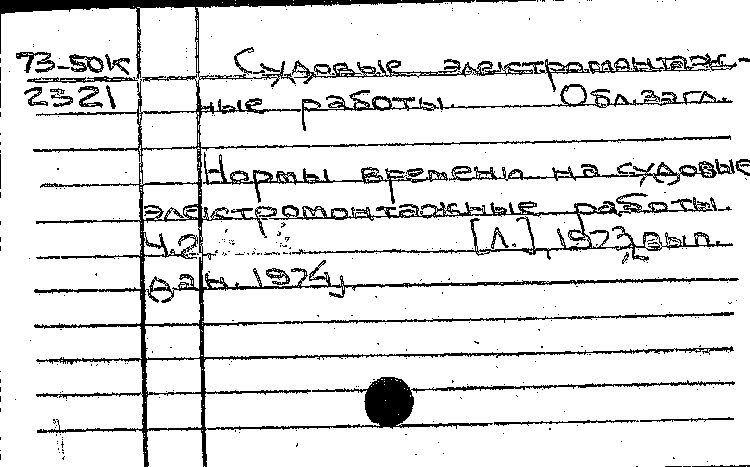 73-50К Судовые электромонтаж-
2321 ные работы. Обл.загл.
Нормы времени на судовые
электромонтажные работы.
Ч.2 [Л.], 1973, вып.
дан. 1974.